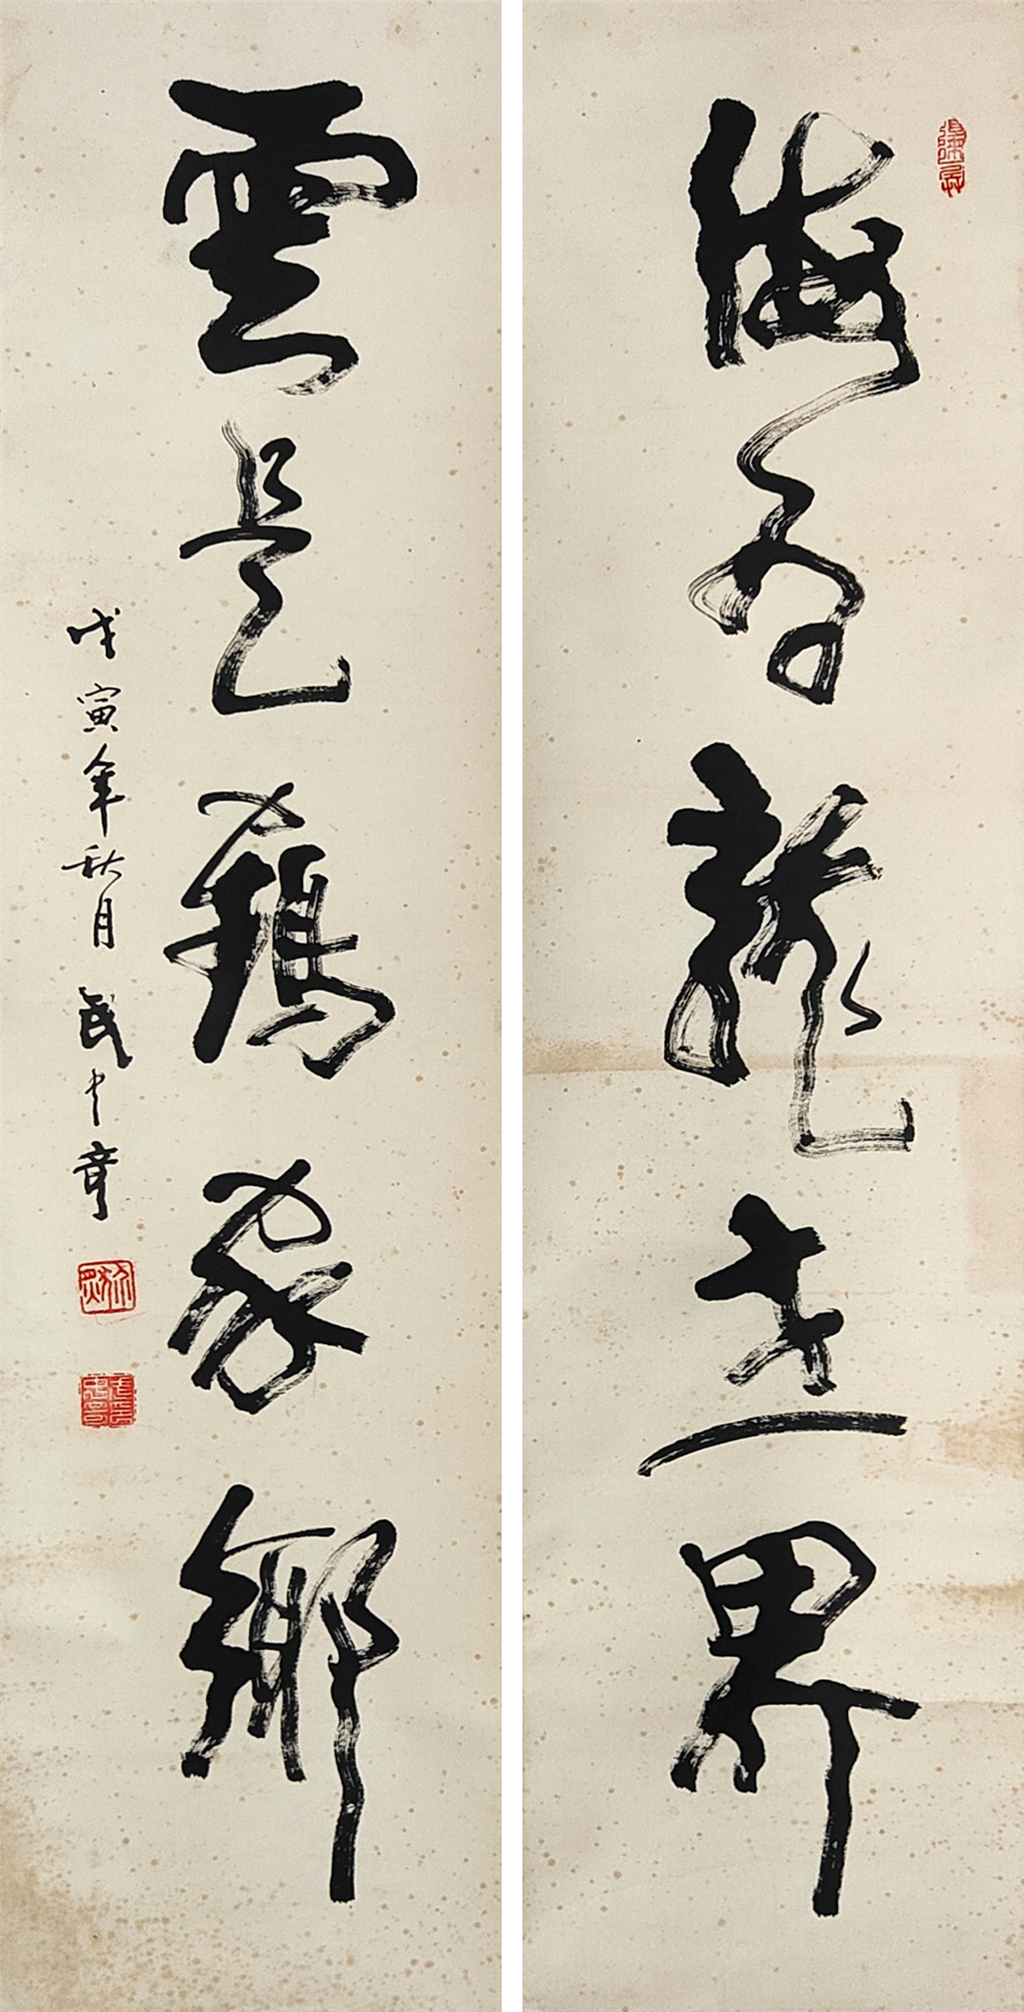 海為龍世界
雲是鶴家鄉
戊寅年秋月武中奇